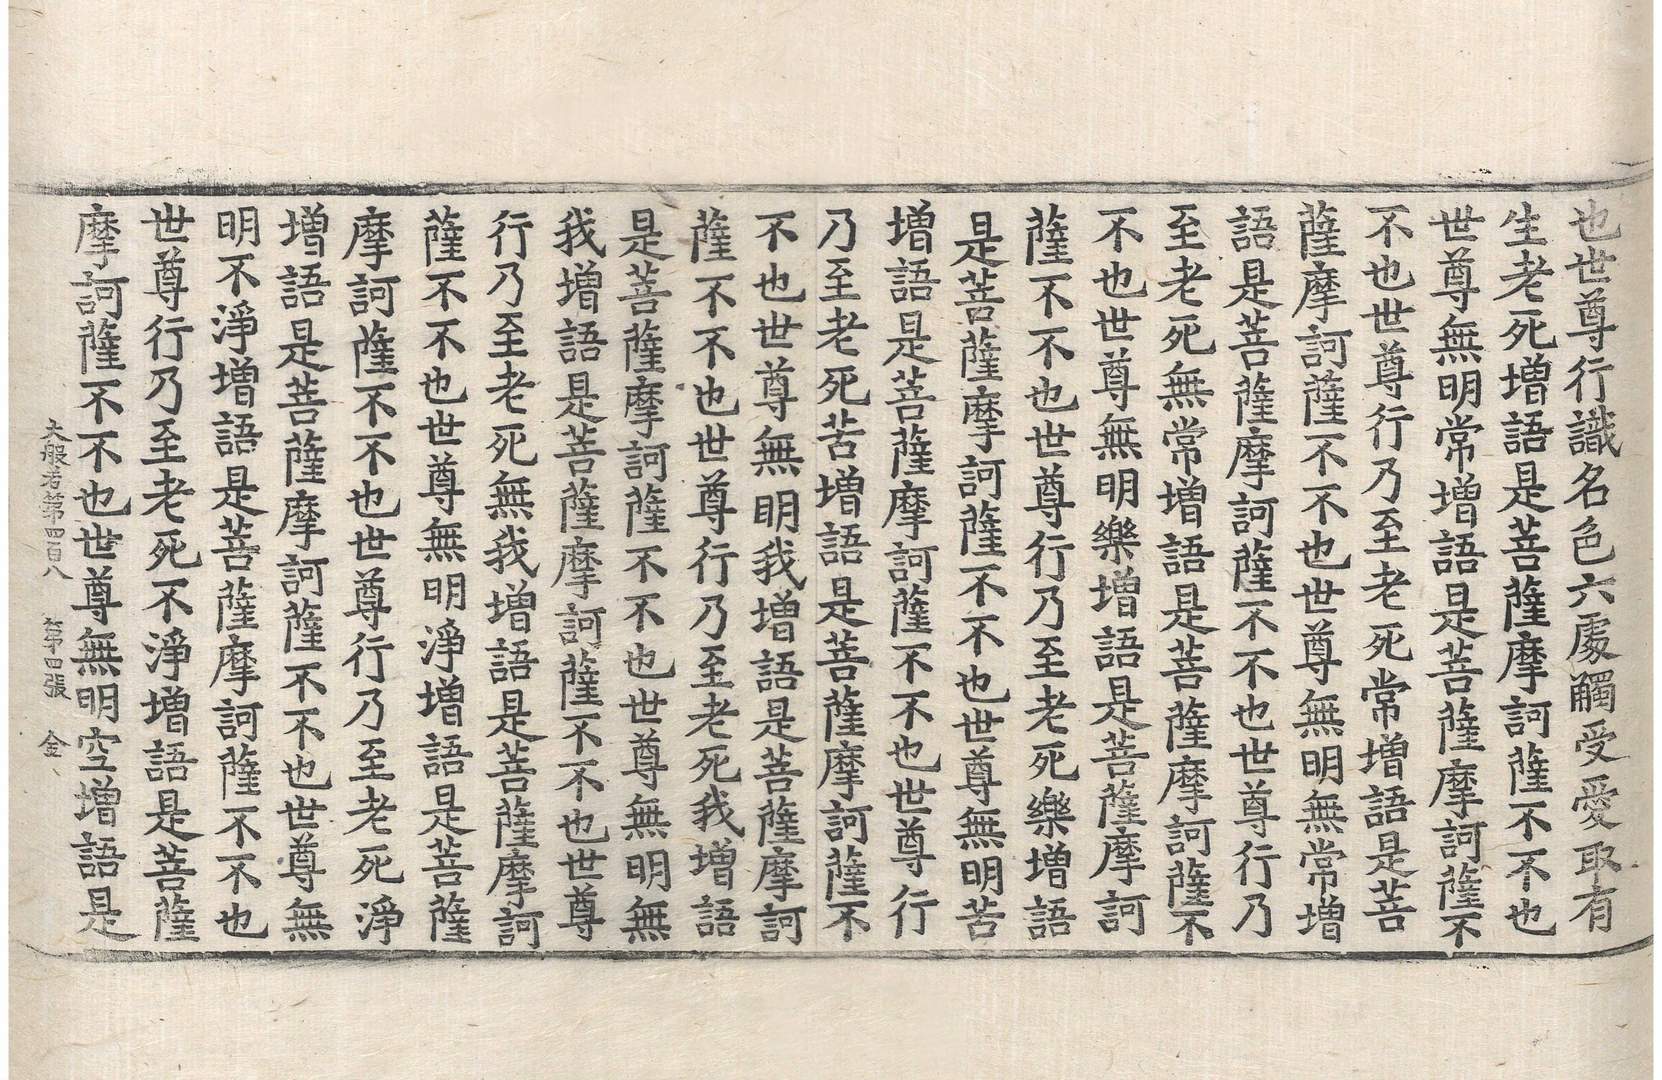 也世尊行識名色六處觸受愛取有
生老死增語是菩薩摩訶薩不不也
世尊無明常增語是菩薩摩訶薩不
不也世尊行乃至老死常增語是菩
薩摩訶薩不不也世尊無明無常增
語是菩薩摩訶薩不不也世尊行乃
至老死無常增語是菩薩摩訶薩不
不也世尊無明樂增語是菩薩摩訶
薩不不也世尊行乃至老死樂增語
是菩薩摩訶薩不不也世尊無明苦
增語是菩薩摩訶薩不不也世尊行
乃至老死苦增語是菩薩摩訶薩不
不也世尊無明我增語是菩薩摩訶
薩不不也世尊行乃至老死我增語
是菩薩摩訶薩不不也世尊無明無
我增語是菩薩摩訶薩不不也世尊
行乃至老死無我增語是菩薩摩訶
薩不不也世尊無明淨增語是菩薩
摩訶薩不不也世尊行乃至老死淨
增語是菩薩摩訶薩不不也世尊無
明不淨增語是菩薩摩訶薩不不也
世尊行乃至老死不淨增語是菩薩
摩訶薩不不也世尊無明空增語是
大般若第四百八 第四張 金